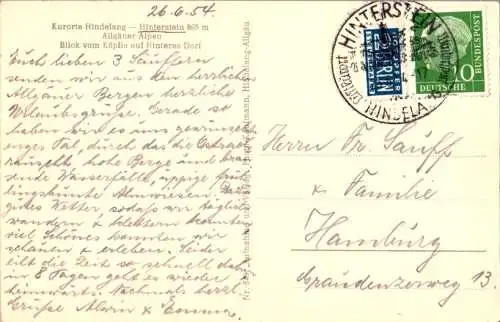 26.6.54.
Kurorte Hindelang — Hinterstein 865 m
Allgäuer Alpen
Blick vom Käpfle auf Hinteres Dorf
Euch lieben 3 Sauffern
senden wir aus den herrlichen
Allgäuer Bergen herzliche
Urlaubsgrüße. Gerade so
haben wir es uns gewünscht
enges Tal, durch das die Ostrach
rauscht, hohe Berge und brau-
sende Wasserfälle, üppige früh-
lingsbunte Almwiesen. Dazu
gutes Wetter, sodaß wir täglich
wandern & klettern konnten
viel Schönes konnten wir
schauen & erleben. Leider
eilt die Zeit so schnell dahin
in 8 Tagen geht es wieder
heimwärts. Nochmals herzl.
Grüße Alwin & Emma.
HINTERSTEIN
HINDELA
NOTOPFER
BERLIN
10
DEUTSCHE
BUNDESPOST
Herrn Fr. Sauff
& Familie
Hamburg
Graudenzerweg 13.